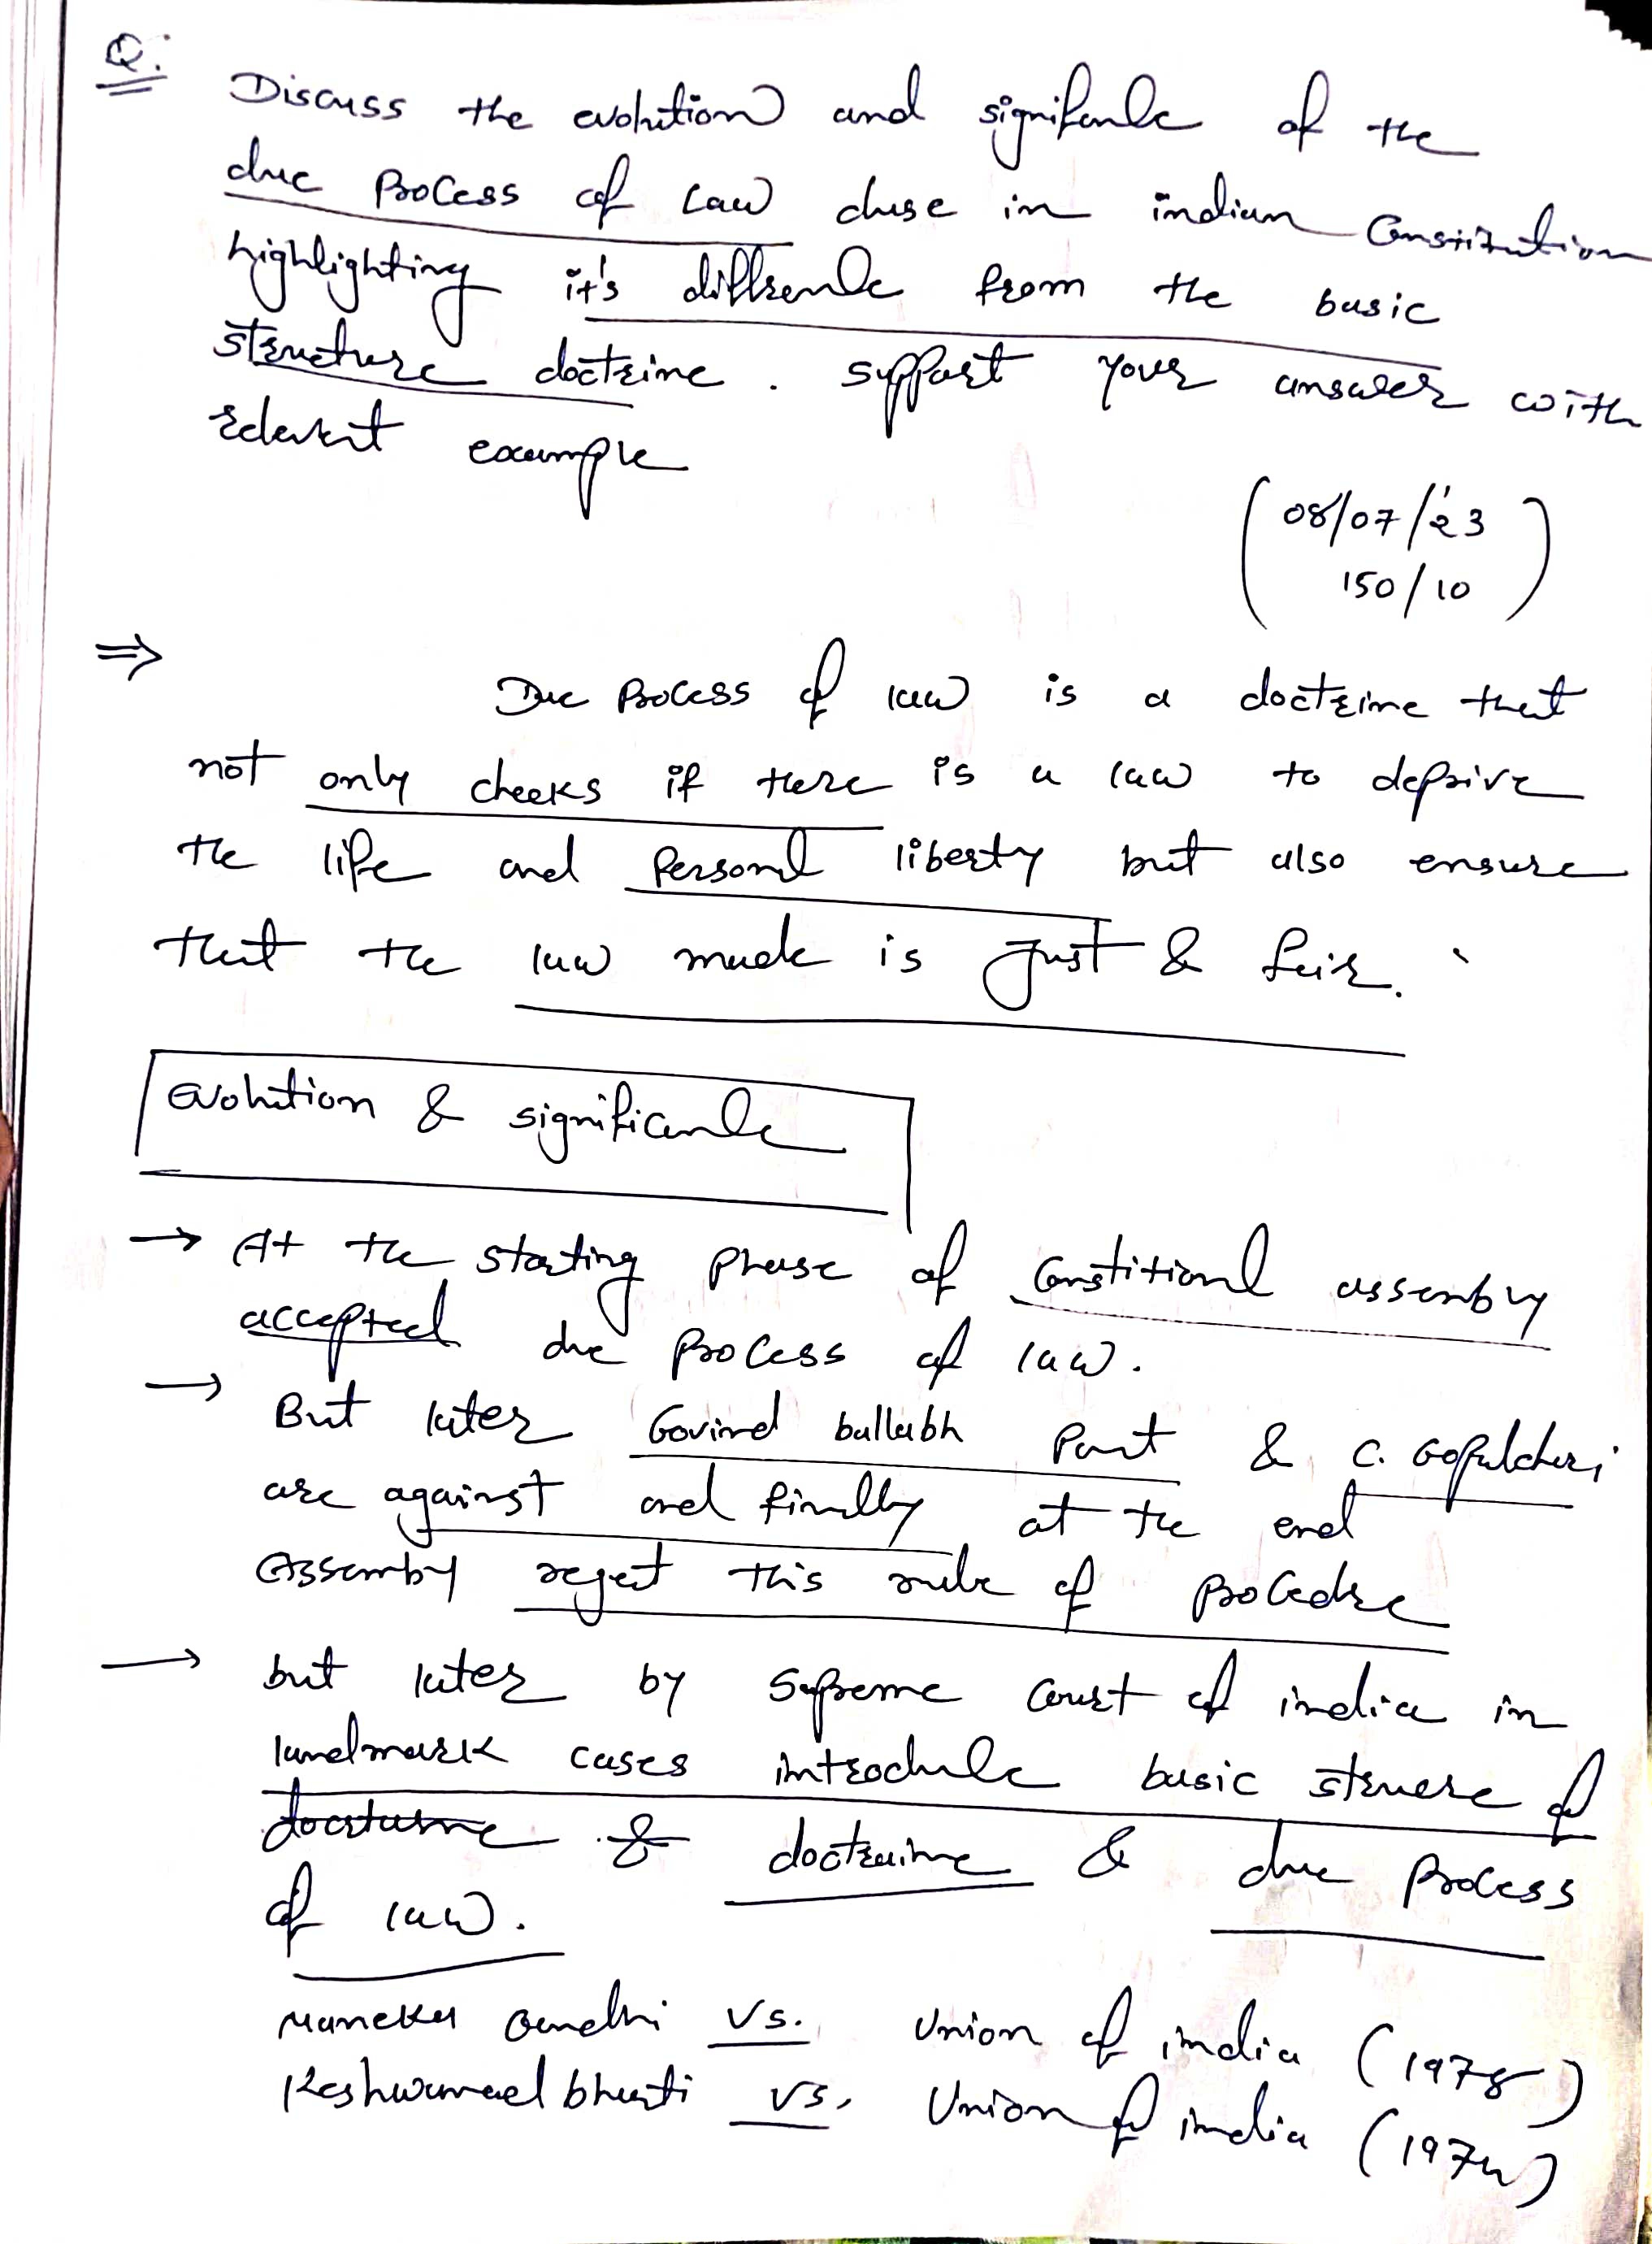 Q.
Discuss the evolution and significance of the
due process of law cluse in indian Constitution
highlighting it's diffrence from the basic
structure doctrine. support your answer with
relevent example
(08/07/23
150/10)
⇒ Due process of law is a doctrine that
not only checks if there is a law to deprive
the life and personal liberty but also ensure
that the law made is Just & fair.
Evolution & significance
→ At the starting phase of Constitional assembly
accepted due process of law.
→ But later Govind ballabh Pant & C. Gopalchari
are against and finally at the end
Assembly reject this rule of procedure
→ but later by Supreme Court of india in
landmark cases introduce basic struere of
doctrine & due process
of law.
Maneka Gandhi vs. Union of india (1978)
Keshwanad bharti vs. Union of india